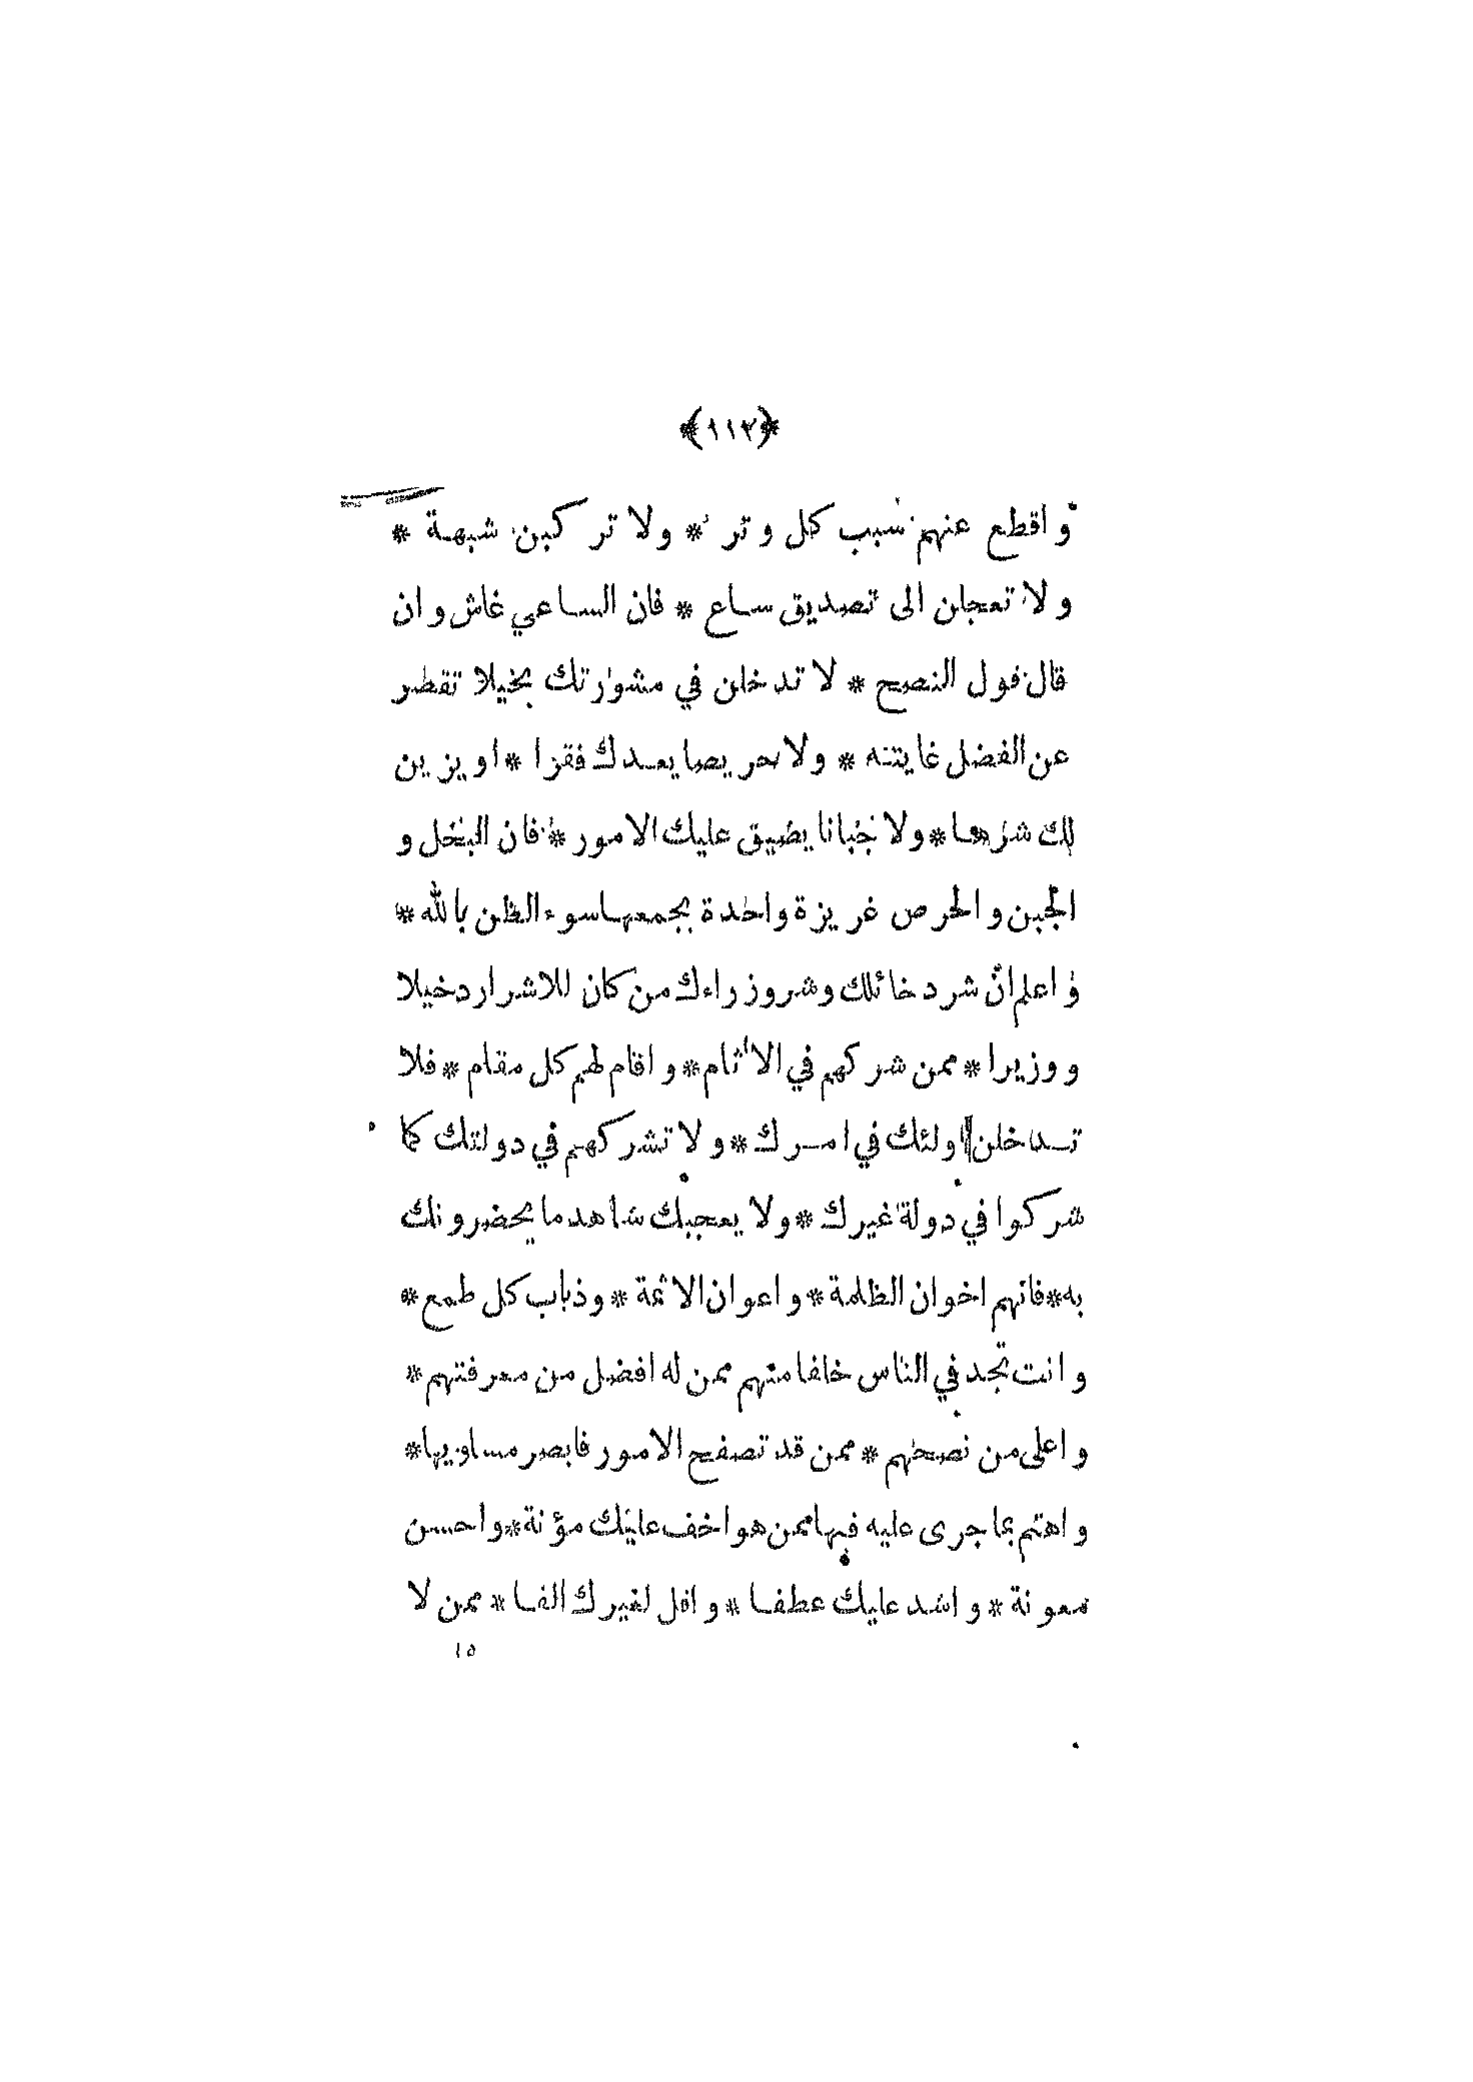 ﴿١١٣﴾
واقطع عنهم سبب كل وتر * ولا تركبن شبهة *
ولا تعجلن الى تصديق ساع * فان الساعي غاش وان
قال قول النصح * لا تدخلن في مشورتك بخيلا تقطر
عن الفضل غايته * ولا حريصا يعدك فقرا * او يزين
لك شرها * ولا جبانا يضيق عليك الامور * فان البخل و
الجبن والحرص غريزة واحدة يجمعها سوء الظن بالله *
واعلم انّ شر دخائلك وشر وزراءك من كان للاشرار دخيلا
ووزيرا * ممن شركهم في الاثام * واقام لهم كل مقام * فلا
تدخلن اولئك في امرك * ولا تشركهم في دولتك كما
شركوا في دولة غيرك * ولا يعجبك شاهد ما يحضرونك
به * فانهم اخوان الظلمة * واعوان الاثمة * وذباب كل طمع *
وانت تجد في الناس خلفا منهم ممن له افضل من معرفتهم *
واعلى من نصحهم * ممن قد تصفح الامور فابصر مساويها *
واهتم بما جرى عليه فيها ممن هو اخف عليك مؤنة * واحسن
معونة * واشد عليك عطفا * واقل لغيرك الفا * ممن لا
١٥